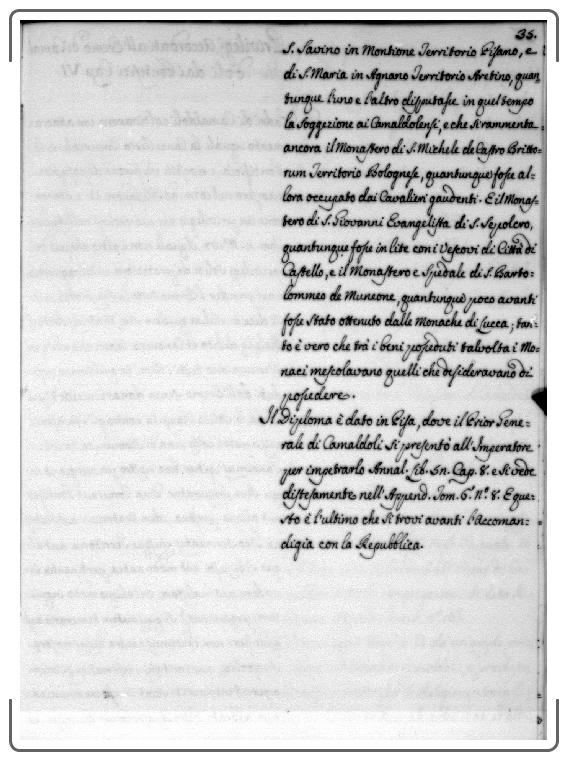 35.
S. Savino in Montione Territorio Pisano, e
di S. Maria in Agnano Territorio Aretino, quan
tunque l'uno e l'altro disputasse in quel tempo
la soggezione ai Camaldolensi, e che si rammenta
ancora il Monastero di S. Michele de Castro Britto=
rum Territorio Bolognese, quantunque fosse al=
lora occupato dai Cavalieri gaudenti. E il Monas=
tero di S. Giovanni Evangelista di S. Sepolcro,
quantunque fosse in lite con i Vescovi di Città di
Castello, e il Monastero e Spedale di S. Barto=
lommeo de Muneone, quantunque poco avanti
fosse stato ottenuto dalle Monache di Lucca; tan=
to è vero che trà i beni posseduti talvolta i Mo=
naci mescolavano quelli che desideravano di
possedere.
Il Diploma è dato in Pisa, dove il Prior Gene=
rale di Camaldoli si presentò all'Imperatore
per impetrarlo Annal. Lib. 5n. Cap. 8. e si vede
distesamente nell'Append. Tom. 6.° N.° 8. E que=
sto è l'ultimo che si trovi avanti l'Accoman=
digia con la Repubblica.